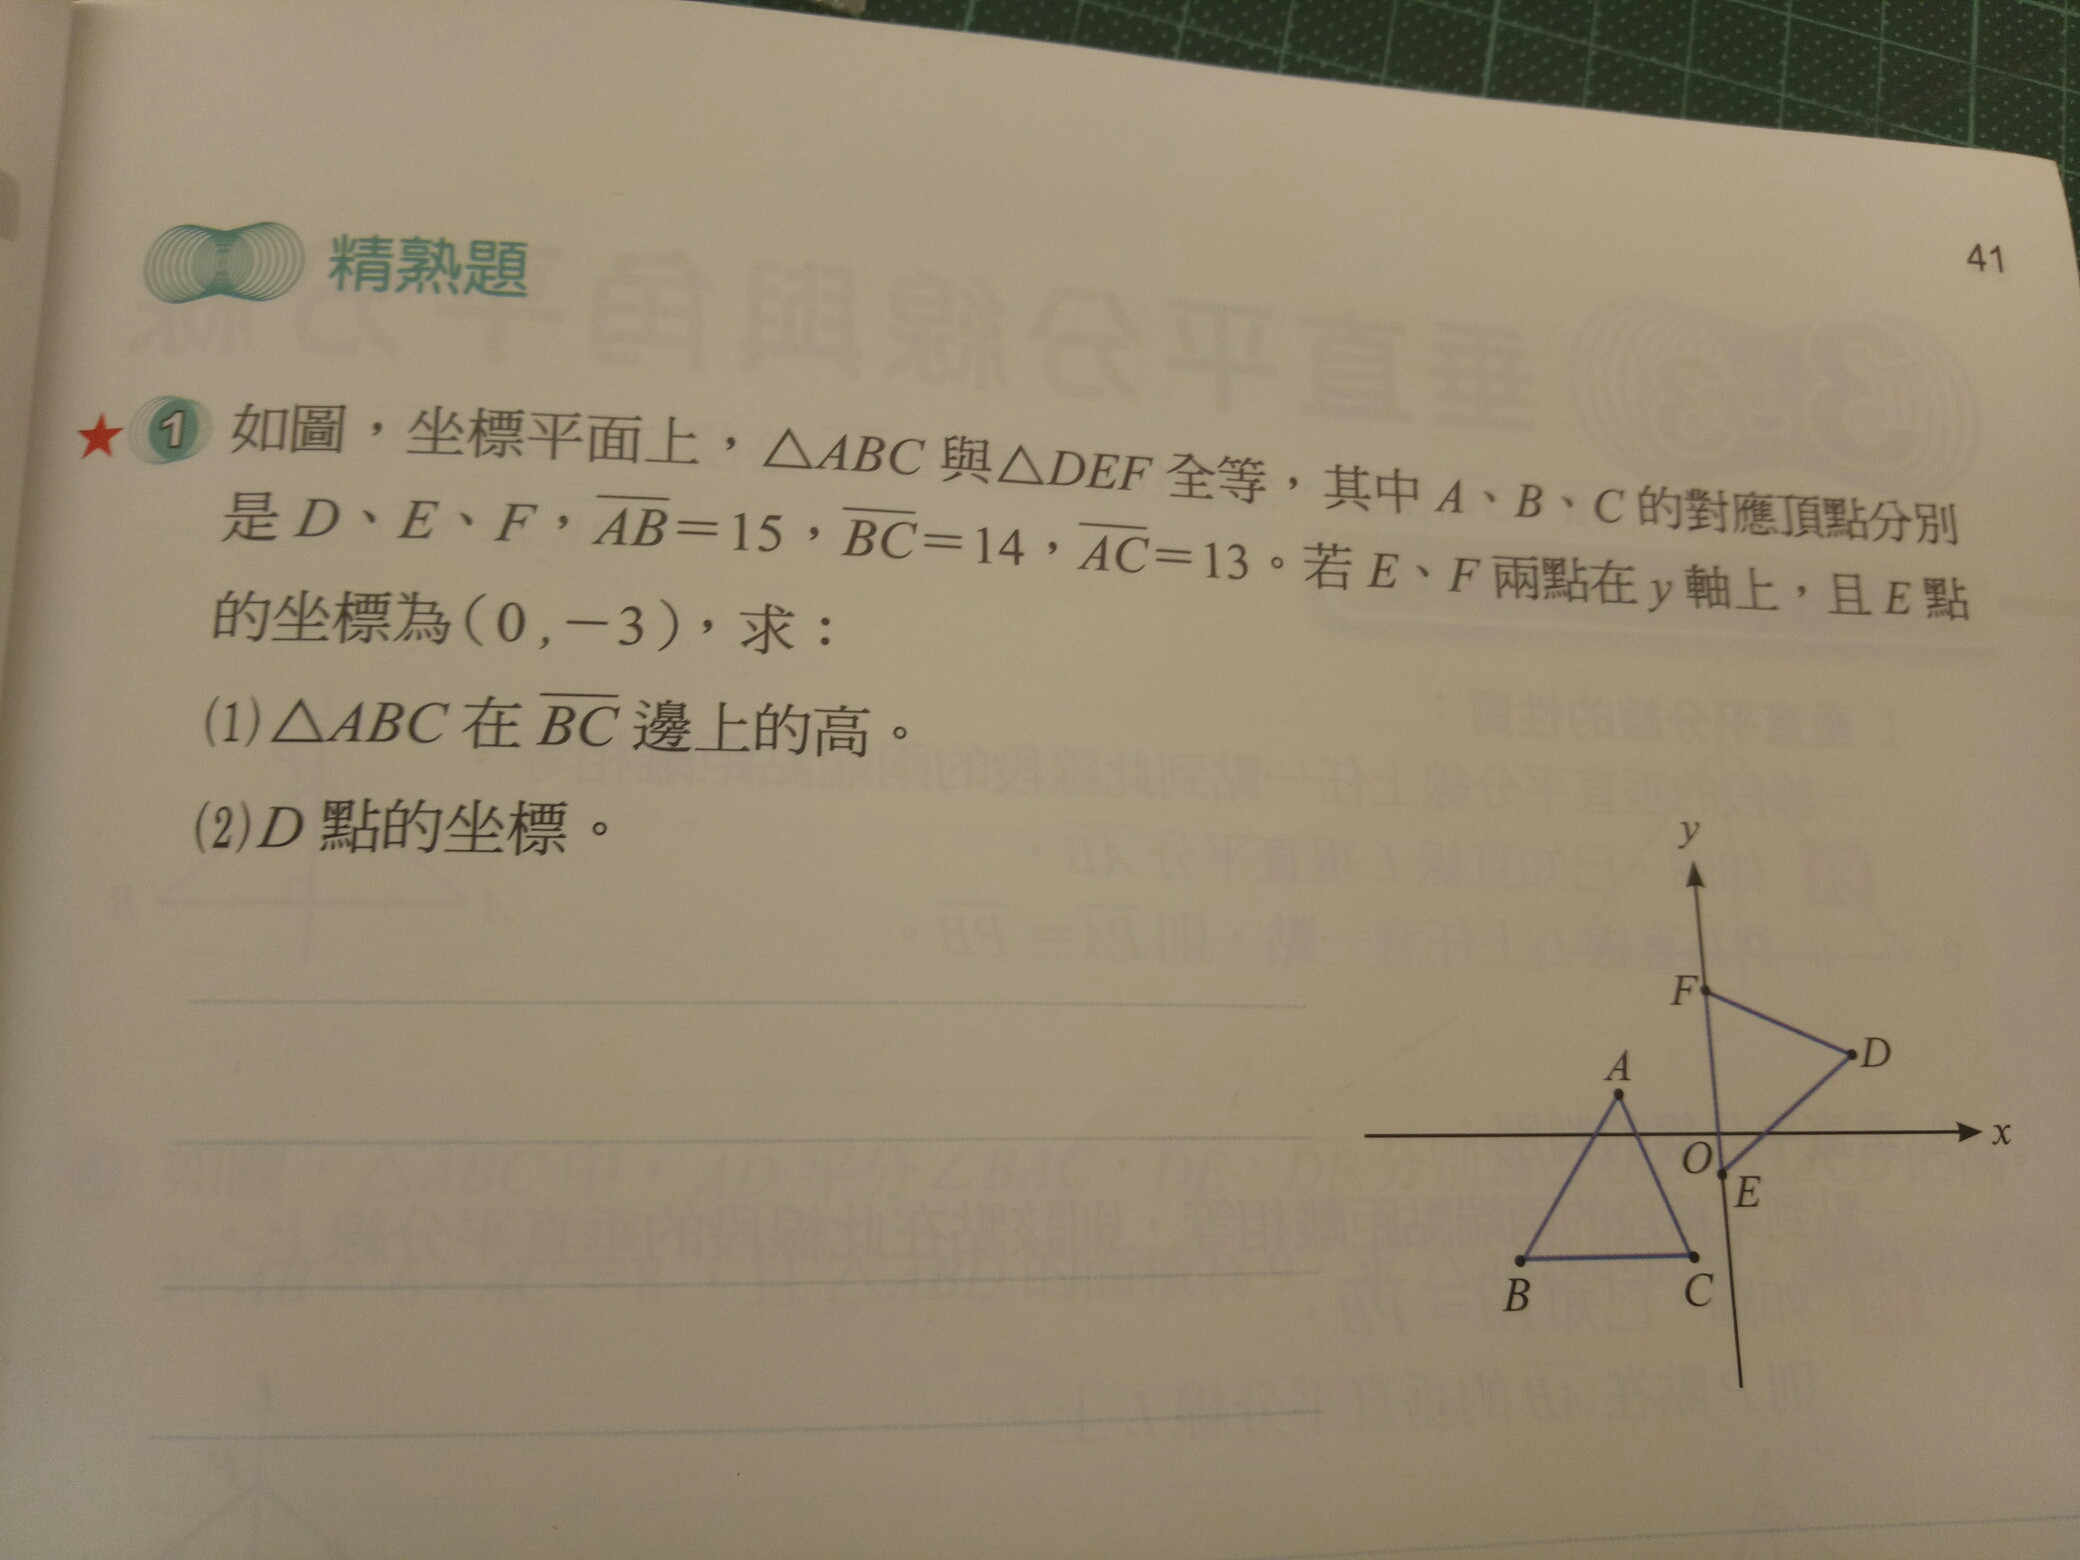 41
精熟題
★ 1 如圖，坐標平面上，△ABC 與△DEF 全等，其中 A、B、C 的對應頂點分別
是 D、E、F，AB=15，BC=14，AC=13。若 E、F 兩點在 y 軸上，且 E 點
的坐標為(0,－3)，求：
(1)△ABC 在 BC 邊上的高。
(2)D 點的坐標。
y
F
D
A
x
O
E
B
C